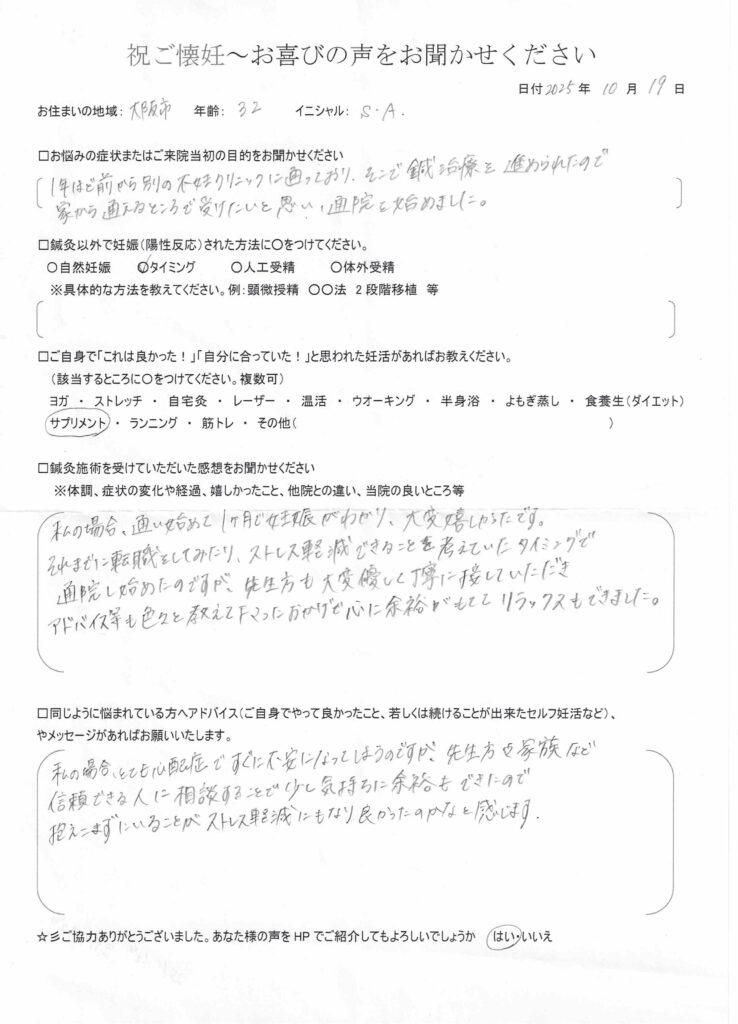 祝ご懐妊～お喜びの声をお聞かせください
日付2025年 10月 19日
お住まいの地域：大阪市 年齢：32 イニシャル：S.A.
□お悩みの症状またはご来院当初の目的をお聞かせください
1年ほど前から別の不妊クリニックに通っており、そこで鍼治療を進められたので
家から通えるところで受けたいと思い、通院を始めました。
□鍼灸以外で妊娠（陽性反応）された方法に○をつけてください。
○自然妊娠 ○タイミング ○人工受精 ○体外受精
※具体的な方法を教えてください。例：顕微授精 ○○法 2段階移植 等
□ご自身で「これは良かった！」「自分に合っていた！」と思われた妊活があればお教えください。
（該当するところに○をつけてください。複数可）
ヨガ ・ ストレッチ ・ 自宅灸 ・ レーザー ・ 温活 ・ ウオーキング ・ 半身浴 ・ よもぎ蒸し ・ 食養生（ダイエット）
サプリメント ・ ランニング ・ 筋トレ ・ その他（ ）
□鍼灸施術を受けていただいた感想をお聞かせください
※体調、症状の変化や経過、嬉しかったこと、他院との違い、当院の良いところ等
私の場合、通い始めて1ヶ月で妊娠がわかり、大変嬉しかったです。
それまでに転職をしてみたり、ストレス軽減できることを考えていたタイミングで
通院し始めたのですが、先生方も大変優しく丁寧に接していただき
アドバイス等も色々と教えて下さったおかげで心に余裕がもててリラックスもできました。
□同じように悩まれている方へアドバイス（ご自身でやって良かったこと、若しくは続けることが出来たセルフ妊活など）、
やメッセージがあればお願いいたします。
私の場合、とても心配症ですぐに不安になってしまうのですが、先生方や家族など
信頼できる人に相談することで少し気持ちに余裕もできたので
抱えこまずにいることがストレス軽減にもなり良かったのかなと感じます.
☆彡ご協力ありがとうございました。あなた様の声をHPでご紹介してもよろしいでしょうか はい・いいえ